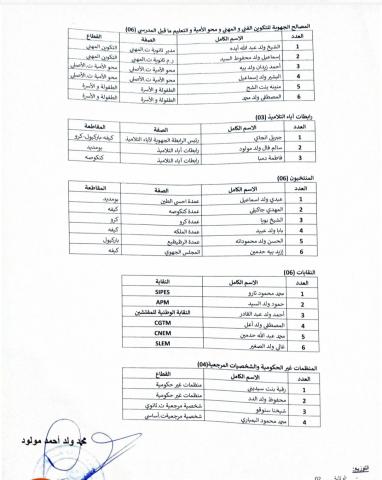 المصالح الجهوية للتكوين الفني و المهني و محو الأمية و التعليم ما قبل المدرسي (06)
العدد الاسم الكامل الصفة القطاع
1 الشيخ ولد عبد الله أيده مدير ثانوية ت.المهني التكوين المهني
2 إسماعيل ولد محفوظ السيد ر.م ثانوية ت.المهني التكوين المهني
3 أحمد زيدان ولد بيه محو الأمية ت.الأصلي محو الأمية ت.الأصلي
4 البشير ولد إسماعيل محو الأمية ت.الأصلي محو الأمية ت.الأصلي
5 منينه بنت الشح الطفولة و الأسرة الطفولة و الأسرة
6 المصطفى ولد محمد الطفولة و الأسرة الطفولة و الأسرة
رابطات آباء التلاميذ (03)
العدد الاسم الكامل الصفة المقاطعة
1 جبريل انجاي رئيس الرابطة الجهوية لآباء التلاميذ كيفه-باركيول-كرو
2 سالم فال ولد مولود رابطات آباء التلاميذ بومديد
3 فاطمة دمبا رابطات آباء التلاميذ كنكوصه
المنتخبون (06)
العدد الاسم الكامل الصفة المقاطعة
1 عبدي ولد اسماعيل عمدة احسي الطين بومديد
2 المهدي جاكيلي عمدة كنكوصه
3 الشيخ بويا عمدة كرو كرو
4 بابا ولد عبيد عمدة الملكه كيفه
5 الحسن ولد محمودانه عمدة الرظيظيع باركيول
6 إزيد بيه حدمين المجلس الجهوي كيفه
النقابات (06)
العدد الاسم الكامل النقابة
1 محمد محمود نارو SIPES
2 حمود ولد السيد APM
3 أحمد ولد عبد القادر النقابة الوطنية للمفتشين
4 المصطفى ولد أعل CGTM
5 محمد عبد الله حدمين CNEM
6 غالي ولد الصغير SLEM
المنظمات غير الحكومية والشخصيات المرجعية(04)
العدد الاسم الكامل
1 رقية بنت سيديني منظمات غير حكومية
2 محفوظ ولد الدد منظمات غير حكومية
3 شيخنا سنوقو شخصية مرجعية ت.ثانوي
4 محمد محمود اليمباري شخصية مرجعيات.أساسي
محمد ولد أحمد مولود
التوزيع:
02